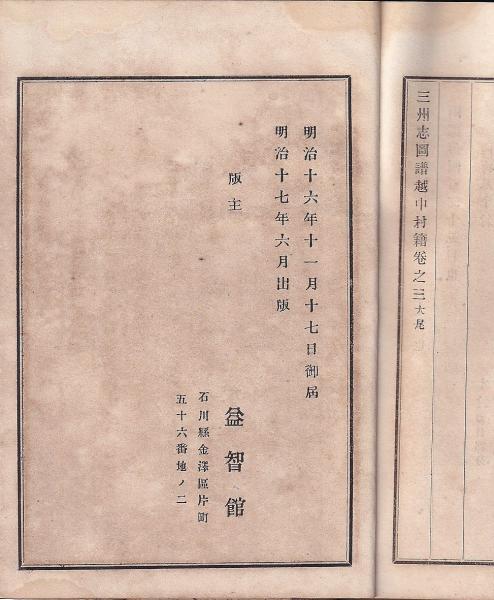 三州志圖譜越中村籍卷之三大尾
明治十六年十一月十七日御屆
明治十七年六月出版
版主
益智館
石川縣金澤區片町
五十六番地ノ二